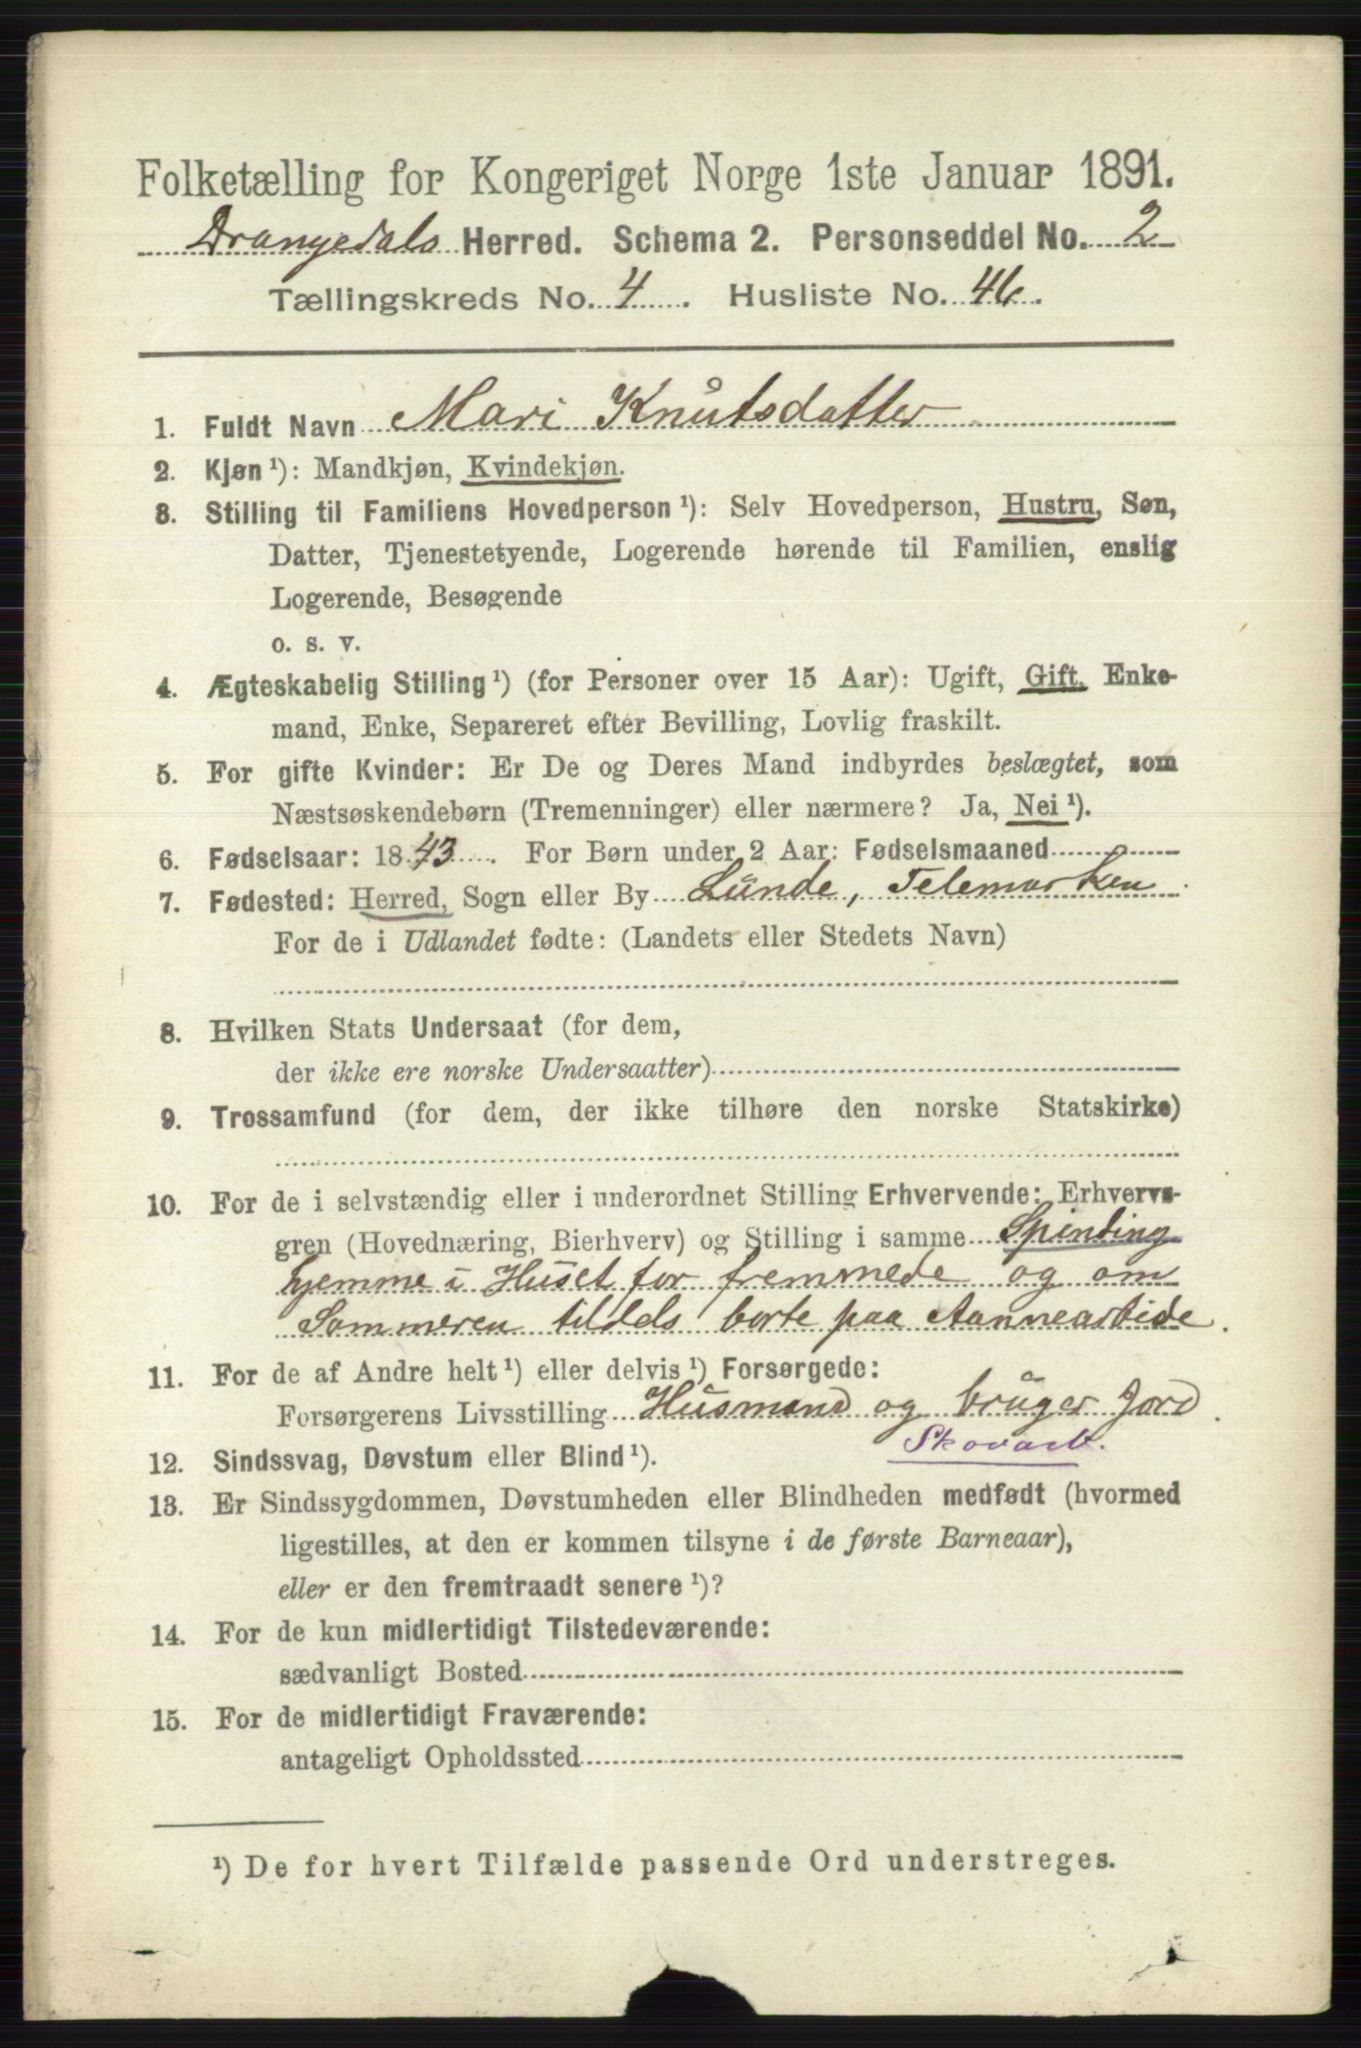 Folketælling for Kongeriget Norge 1ste Januar 1891.
Drangedals Herred. Schema 2. Personseddel No. 2
Tællingskreds No. 4. Husliste No. 46.
1. Fuldt Navn Mari Knutsdatter
2. Kjøn ¹): Mandkjøn, Kvindekjøn.
3. Stilling til Familiens Hovedperson ¹): Selv Hovedperson, Hustru, Søn,
Datter, Tjenestetyende, Logerende hørende til Familien, enslig
Logerende, Besøgende
o. s. v.
4. Ægteskabelig Stilling ¹) (for Personer over 15 Aar): Ugift, Gift, Enke-
mand, Enke, Separeret efter Bevilling, Lovlig fraskilt.
5. For gifte Kvinder: Er De og Deres Mand indbyrdes beslægtet, som
Næstsøskendebørn (Tremenninger) eller nærmere? Ja, Nei ¹).
6. Fødselsaar: 1843. For Børn under 2 Aar: Fødselsmaaned
7. Fødested: Herred, Sogn eller By Lunde, Telemarken
For de i Udlandet fødte: (Landets eller Stedets Navn)
8. Hvilken Stats Undersaat (for dem,
der ikke ere norske Undersaatter)
9. Trossamfund (for dem, der ikke tilhøre den norske Statskirke)
10. For de i selvstændig eller i underordnet Stilling Erhvervende: Erhvervs-
gren (Hovednæring, Bierhverv) og Stilling i samme Spinding
hjemme i Huset for fremmede og om
Sommeren tildels borte paa Aannearbeide.
11. For de af Andre helt ¹) eller delvis ¹) Forsørgede:
Forsørgerens Livsstilling Husmand og bruger Jord.
Skovarb.
12. Sindssvag, Døvstum eller Blind ¹).
13. Er Sindssygdommen, Døvstumheden eller Blindheden medfødt (hvormed
ligestilles, at den er kommen tilsyne i de første Barneaar),
eller er den fremtraadt senere ¹)?
14. For de kun midlertidigt Tilstedeværende:
sædvanligt Bosted
15. For de midlertidigt Fraværende:
antageligt Opholdssted
¹) De for hvert Tilfælde passende Ord understreges.